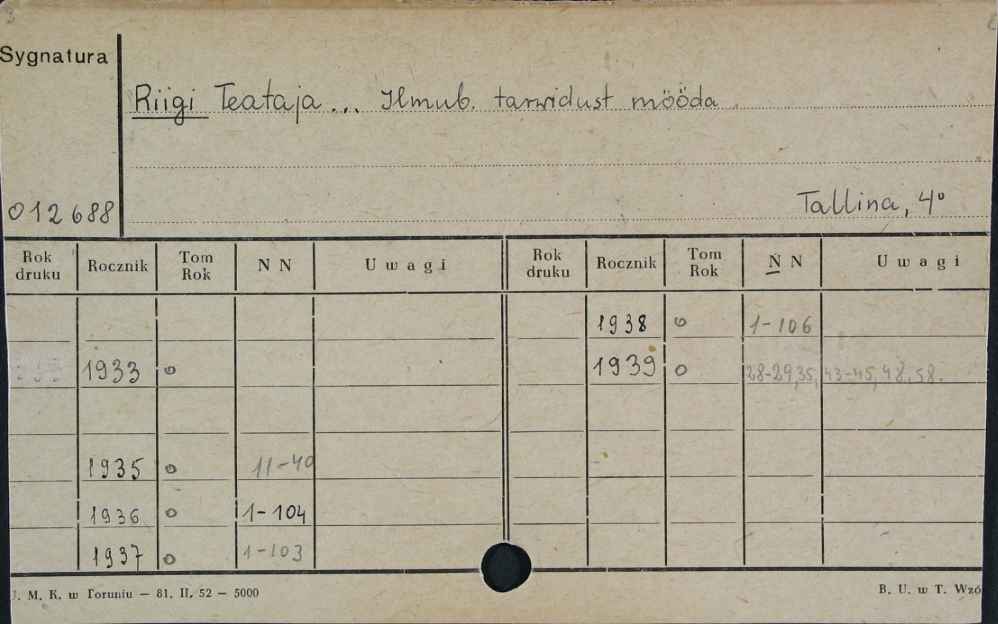 Sygnatura
Riigi Teataja... Ilmub. tarwidust mööda
012688
Tallina, 4°
Rok druku Rocznik Tom Rok N N Uwagi Rok druku Rocznik Tom Rok N N Uwagi
1938 o 1-106
1933 o 1939 o 28-29,35, 43-45, 48, 58.
1935 o 11-40
1936 o 1-104
1937 o 1-103
. M. K. w Toruniu — 81. II. 52 — 5000 B. U. w T. Wzó